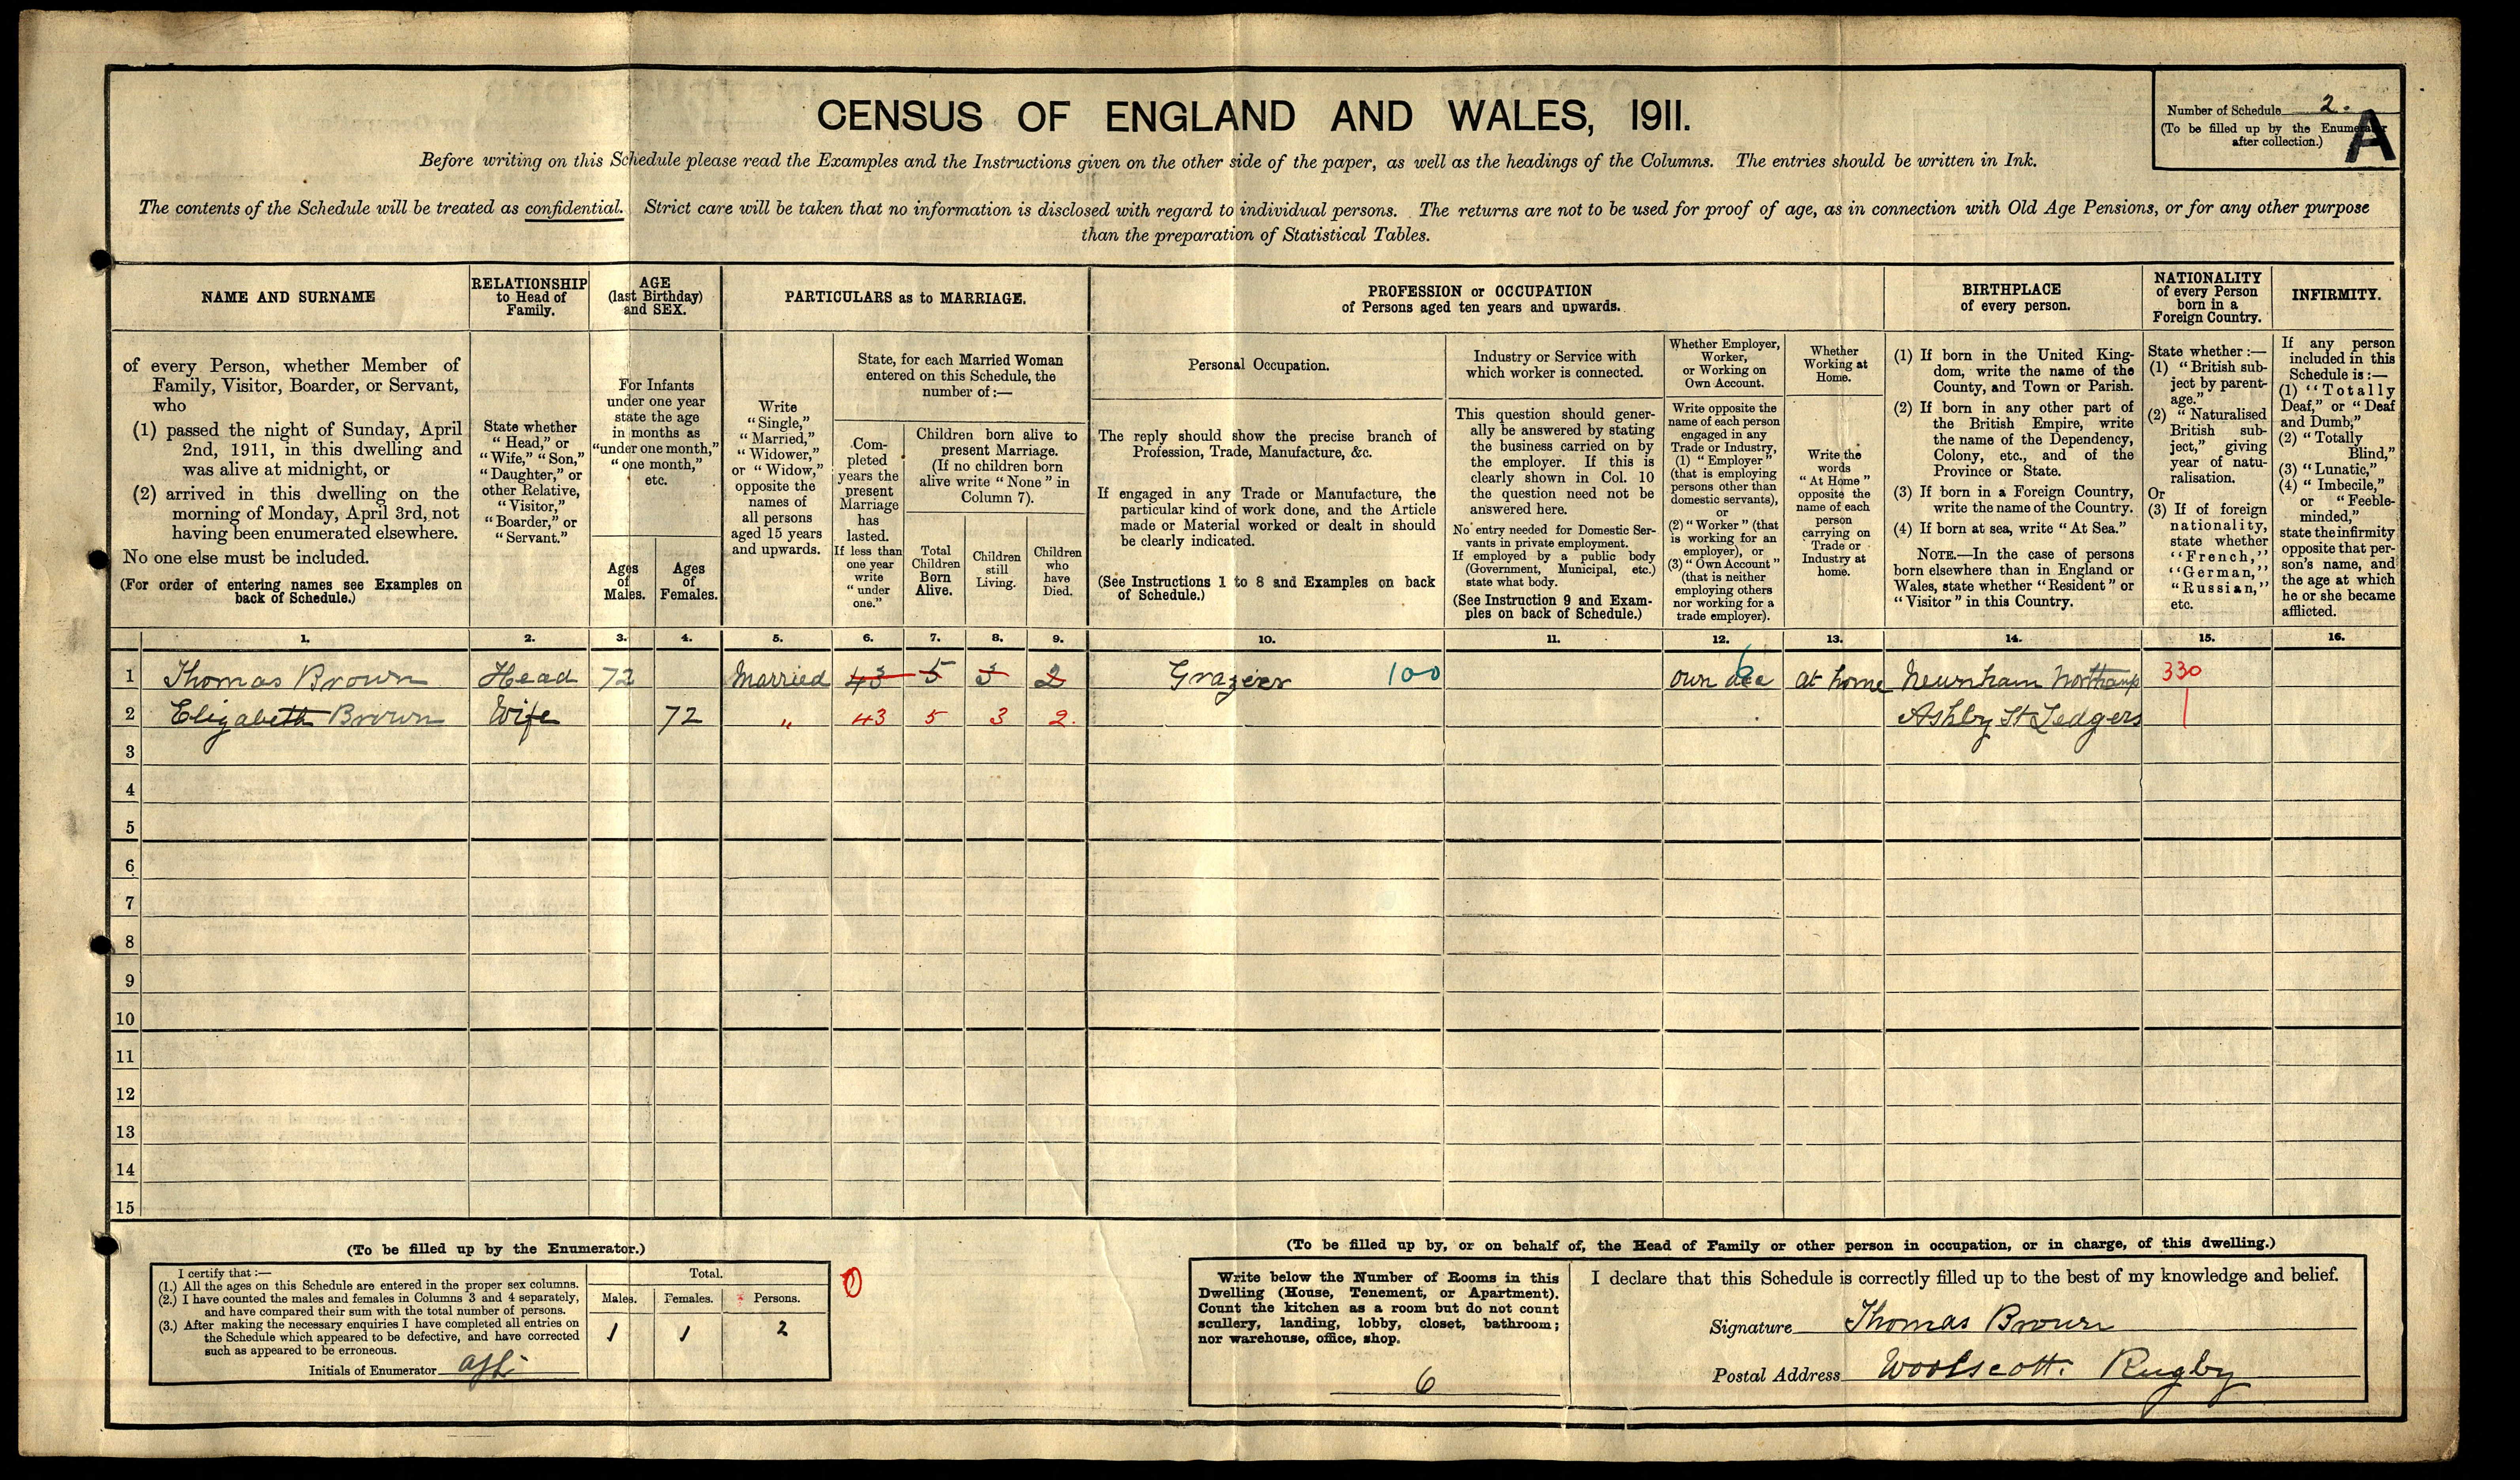 CENSUS OF ENGLAND AND WALES, 1911.
Number of Schedule 2.
(To be filled up by the Enumerator after collection.)
A
Before writing on this Schedule please read the Examples and the Instructions given on the other side of the paper, as well as the headings of the Columns. The entries should be written in Ink.
The contents of the Schedule will be treated as confidential. Strict care will be taken that no information is disclosed with regard to individual persons. The returns are not to be used for proof of age, as in connection with Old Age Pensions, or for any other purpose
than the preparation of Statistical Tables.
NAME AND SURNAME
of every Person, whether Member of
Family, Visitor, Boarder, or Servant,
who
(1) passed the night of Sunday, April
2nd, 1911, in this dwelling and
was alive at midnight, or
(2) arrived in this dwelling on the
morning of Monday, April 3rd, not
having been enumerated elsewhere.
No one else must be included.
(For order of entering names see Examples on
back of Schedule.)
RELATIONSHIP
to Head of
Family.
State whether
"Head," or
"Wife," "Son,"
"Daughter," or
other Relative,
"Visitor,"
"Boarder," or
"Servant."
AGE
(last Birthday)
and SEX.
For Infants
under one year
state the age
in months as
"under one month,"
"one month,"
etc.
Ages
of
Males.
Ages
of
Females.
PARTICULARS as to MARRIAGE.
Write
"Single,"
"Married,"
"Widower,"
or "Widow,"
opposite the
names of
all persons
aged 15 years
and upwards.
State, for each Married Woman
entered on this Schedule, the
number of:—
Com-
pleted
years the
present
Marriage
has
lasted.
If less than
one year
write
"under
one."
Children born alive to
present Marriage.
(If no children born
alive write "None" in
Column 7).
Total
Children
Born
Alive.
Children
still
Living.
Children
who
have
Died.
PROFESSION or OCCUPATION
of Persons aged ten years and upwards.
Personal Occupation.
The reply should show the precise branch of
Profession, Trade, Manufacture, &c.
If engaged in any Trade or Manufacture, the
particular kind of work done, and the Article
made or Material worked or dealt in should
be clearly indicated.
(See Instructions 1 to 8 and Examples on back
of Schedule.)
Industry or Service with
which worker is connected.
This question should gener-
ally be answered by stating
the business carried on by
the employer. If this is
clearly shown in Col. 10
the question need not be
answered here.
No entry needed for Domestic Ser-
vants in private employment.
If employed by a public body
(Government, Municipal, etc.)
state what body.
(See Instruction 9 and Exam-
ples on back of Schedule.)
Whether Employer,
Worker,
or Working on
Own Account.
Write opposite the
name of each person
engaged in any
Trade or Industry,
(1) "Employer"
(that is employing
persons other than
domestic servants),
or
(2) "Worker" (that
is working for an
employer), or
(3) "Own Account"
(that is neither
employing others
nor working for a
trade employer).
Whether
Working at
Home.
Write the
words
"At Home"
opposite the
name of each
person
carrying on
Trade or
Industry at
home.
BIRTHPLACE
of every person.
(1) If born in the United King-
dom, write the name of the
County, and Town or Parish.
(2) If born in any other part of
the British Empire, write
the name of the Dependency,
Colony, etc., and of the
Province or State.
(3) If born in a Foreign Country,
write the name of the Country.
(4) If born at sea, write "At Sea."
NOTE.—In the case of persons
born elsewhere than in England or
Wales, state whether "Resident" or
"Visitor" in this Country.
NATIONALITY
of every Person
born in a
Foreign Country.
State whether:—
(1) "British sub-
ject by parent-
age."
(2) "Naturalised
British sub-
ject," giving
year of natu-
ralisation.
Or
(3) If of foreign
nationality,
state whether
"French,"
"German,"
"Russian,"
etc.
INFIRMITY.
If any person
included in this
Schedule is:—
(1) "Totally
Deaf," or "Deaf
and Dumb,"
(2) "Totally
Blind,"
(3) "Lunatic,"
(4) "Imbecile,"
or "Feeble-
minded,"
state the infirmity
opposite that per-
son's name, and
the age at which
he or she became
afflicted.
1. 2. 3. 4. 5. 6. 7. 8. 9. 10. 11. 12. 13. 14. 15. 16.
1 Thomas Brown Head 72 Married 43 5 3 2 Grazier 100 own 6 at home Newnham 330
2 Elizabeth Brown Wife 72 " 43 5 3 2. Ashby St Ledgers
3
4
5
6
7
8
9
10
11
12
13
14
15
(To be filled up by the Enumerator.)
I certify that:—
(1.) All the ages on this Schedule are entered in the proper sex columns.
(2.) I have counted the males and females in Columns 3 and 4 separately,
and have compared their sum with the total number of persons.
(3.) After making the necessary enquiries I have completed all entries on
the Schedule which appeared to be defective, and have corrected
such as appeared to be erroneous.
Initials of Enumerator
Total.
Males. Females. Persons.
1 1 2
0
(To be filled up by, or on behalf of, the Head of Family or other person in occupation, or in charge, of this dwelling.)
Write below the Number of Rooms in this
Dwelling (House, Tenement, or Apartment).
Count the kitchen as a room but do not count
scullery, landing, lobby, closet, bathroom;
nor warehouse, office, shop.
6
I declare that this Schedule is correctly filled up to the best of my knowledge and belief.
Signature Thomas Brown
Postal Address Woolscott. Rugby